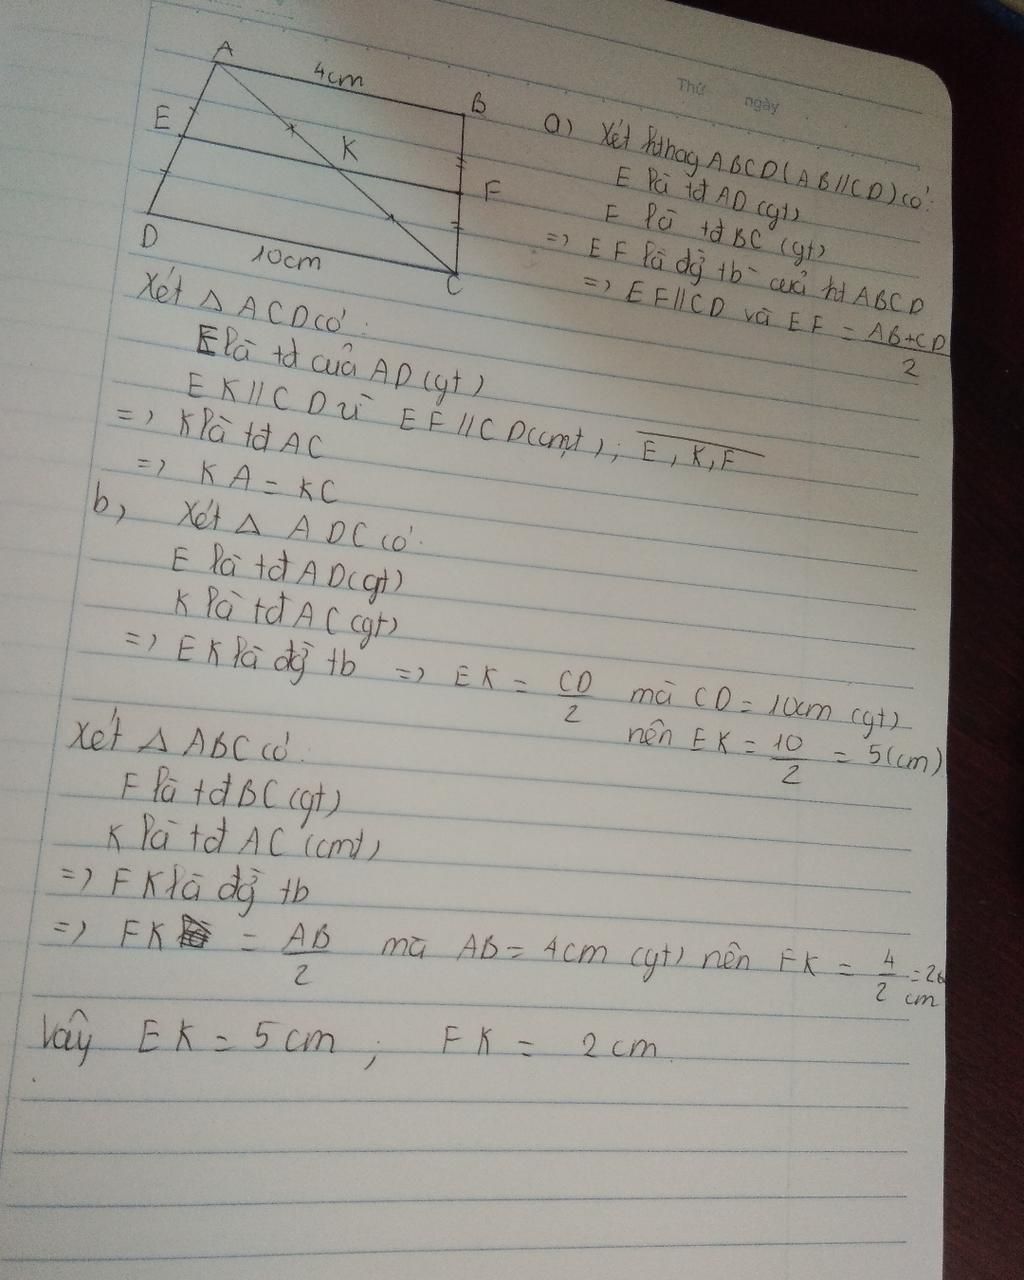 Thứ ngày
A
4cm
B
E
K
F
D
10cm
C
a) Xét hthag ABCD (AB//CD) có:
E là tđ AD (gt)
F là tđ BC (gt)
=> EF là đg tb của ht ABCD
=> EF//CD và EF = AB+CD / 2
Xét △ ACD có:
E là tđ của AD (gt)
EK//CD vì EF//CD (cmt); E, K, F
=> K là tđ AC
=> KA = KC
b, Xét △ ADC có:
E là tđ AD (gt)
K là tđ AC (gt)
=> EK là đg tb => EK = CD / 2 mà CD = 10cm (gt)
nên EK = 10 / 2 = 5(cm)
Xét △ ABC có:
F là tđ BC (gt)
K là tđ AC (cmt)
=> FK là đg tb
=> FK = AB / 2 mà AB = 4cm (gt) nên FK = 4 / 2 = 2
cm
Vậy EK = 5cm ; FK = 2cm.